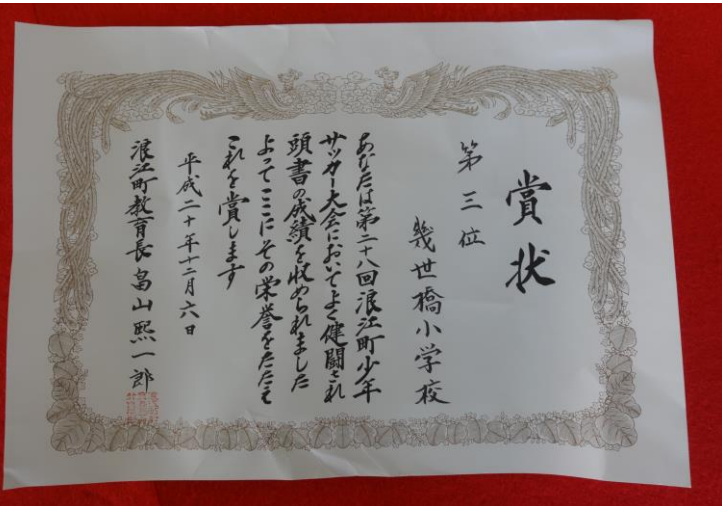 賞状
第三位
幾世橋小学校
あなたは第二十八回浪江町少年
サッカー大会においてよく健闘され
頭書の成績を収められました
よってここにその栄誉をたたえ
これを賞します
平成二十年十二月六日
浪江町教育長 畠山熙一郎